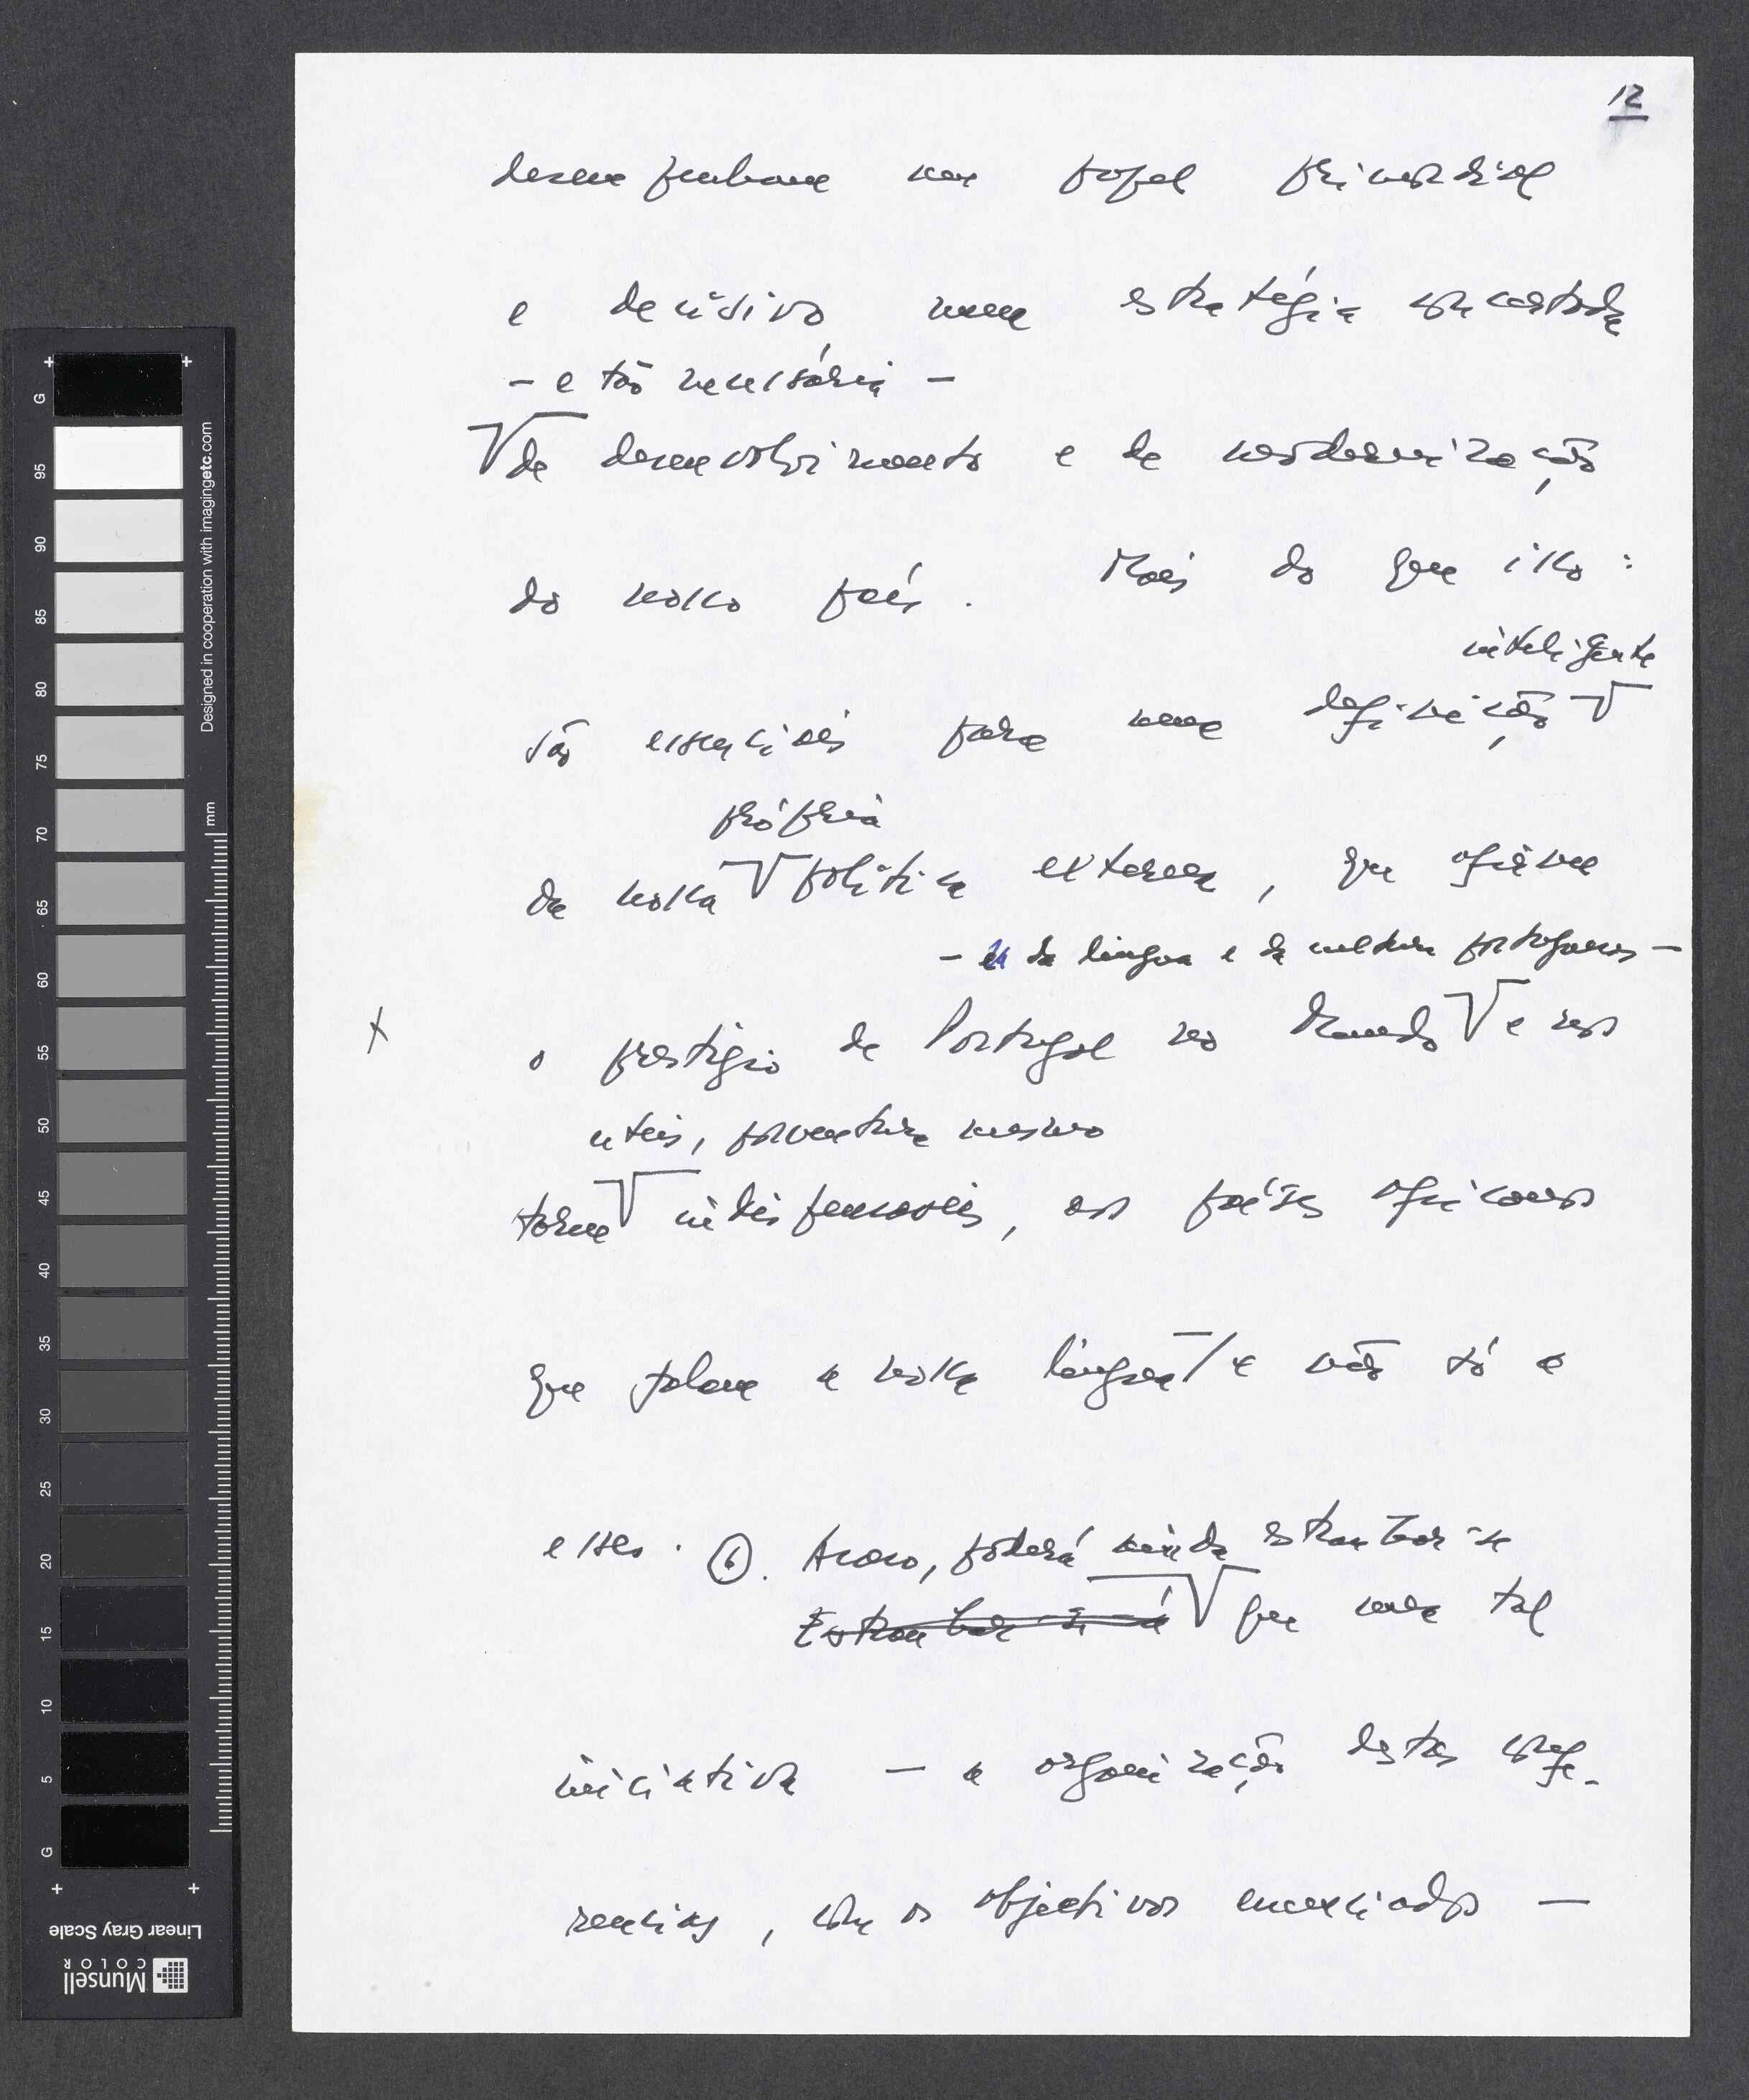 12
desempenham um papel primordial
e decisivo numa estratégia concertada
- e tão necessária -
de desenvolvimento e de modernização
do nosso país. Mais do que isso:
inteligente
são essenciais para uma definição
própria
da nossa política externa, que afirme
- e da língua e da cultura portuguesas -
x
o prestígio de Portugal no Mundo e nos
uteis, porventura mesmo
torne indispensáveis, aos países africanos
que falam a nossa língua / e não só a
esses. 6. Acaso, poderá ainda estranhar-se
Estranhar-se-á que uma tal
iniciativa — a organização destas confe-
rencias, com os objectivos enunciados —
G
95
90
85
80
75
70
65
60
55
50
45
40
35
30
25
20
15
10
5
G
Designed in cooperation with imagingetc.com
mm
Linear Gray Scale
Munsell
COLOR